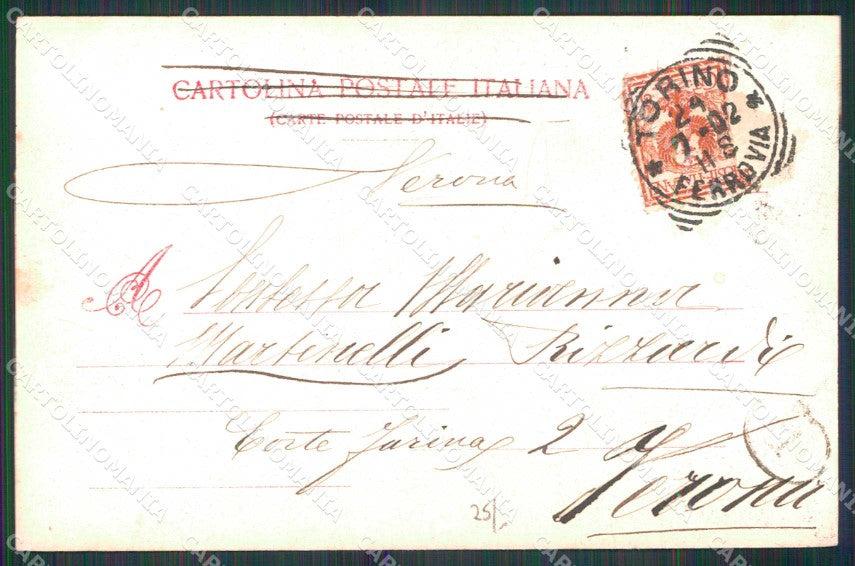 CARTOLINA POSTALE ITALIANA
(CARTE POSTALE D'ITALIE)
TORINO
FERROVIA
Verona
A Contessa Marianna
Martinelli Rizzardi
Corte Farina 2
Verona
25
CARTOLINOMANIA